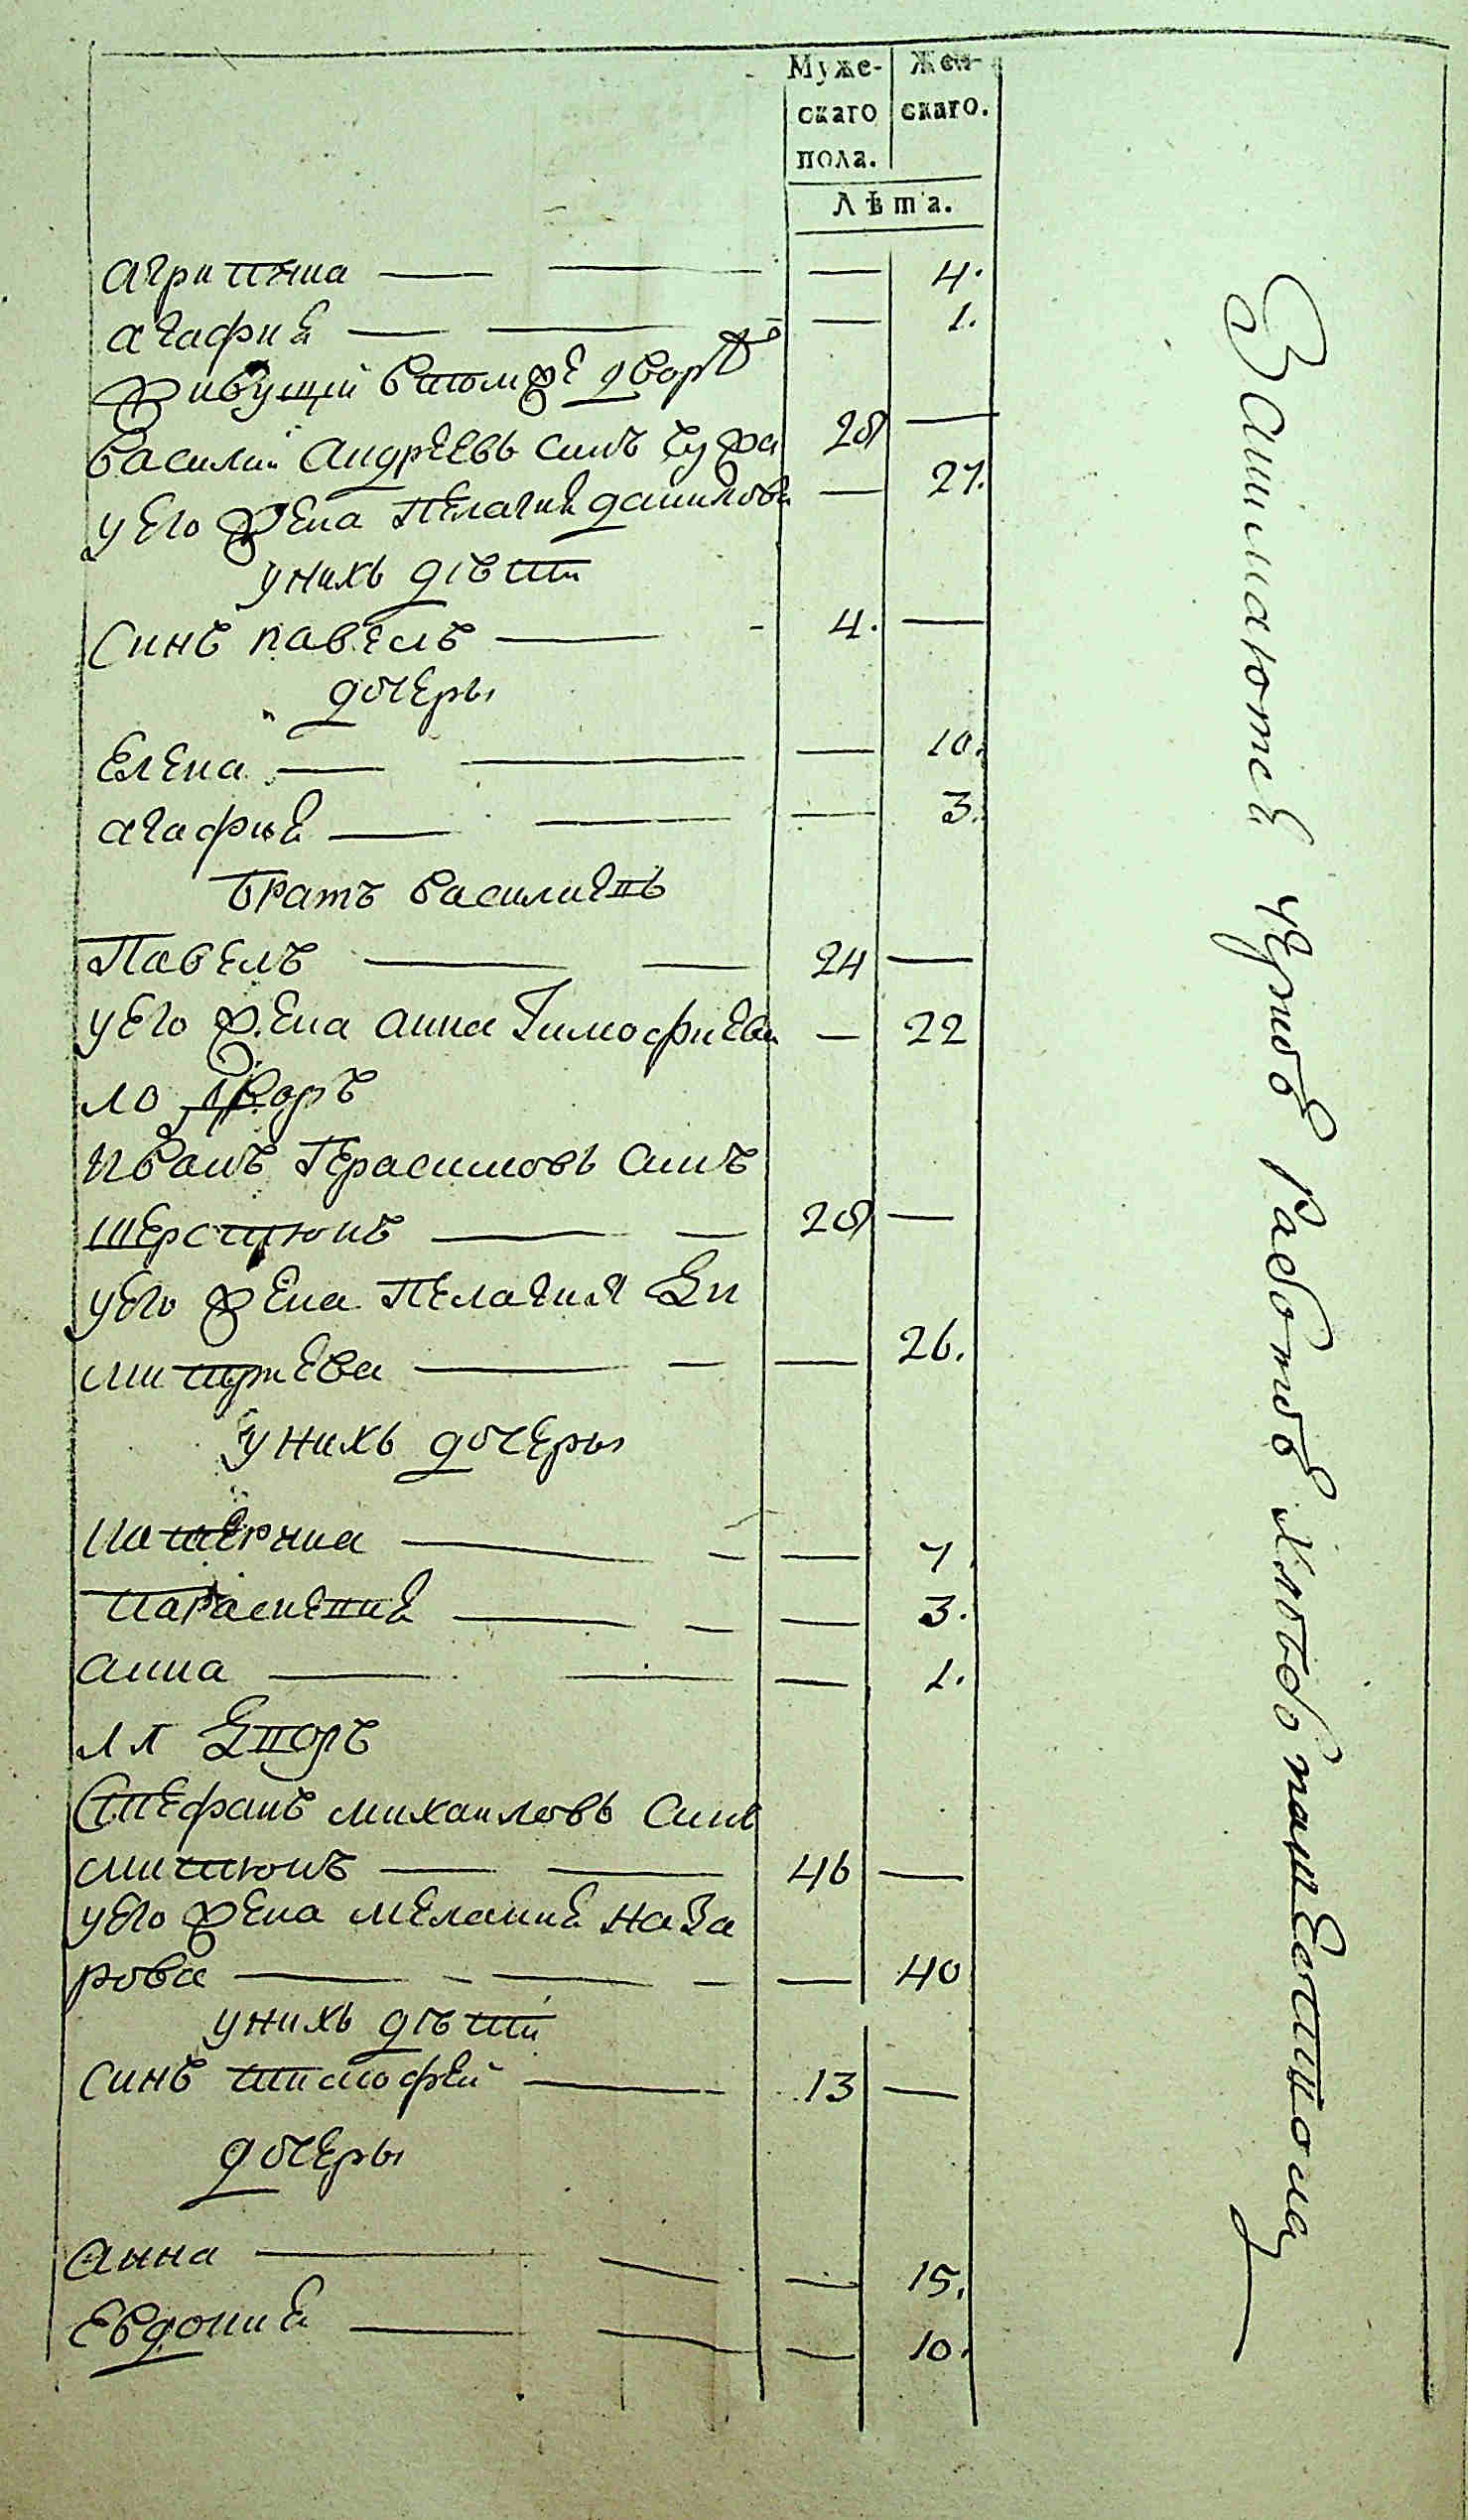 Муже- Жен-
скаго скаго.
пола.
Лѣта.
Агрипина — — — 4.
Агафия — — — 1.
Живущий втомже дворѣ
Василий Андреевъ синъ Чужа 28 —
унего жена Пелагия Данилова — 27.
унихъ дѣти
Синъ Павелъ — 4. —
дочеры
Елена — — — 10.
Агафия — — — 3.
Братъ Василиевъ
Павелъ — — 24 —
унего жена Анна Тимофиева — 22
Дворъ
Иванъ Герасимовъ синъ
Шерстюкъ — — 28 —
унего жена Пелагия Ди
митриева — — — 26.
унихъ дочеры
Катерина — — — 7.
Параскевия — — — 3.
Анна — — — 1.
Дворъ
Стефанъ Михаиловъ синъ
Митюкъ — — 46 —
унего жена Мелания Наза
рова — — — 40
унихъ дѣти
Синъ Тимофей — 13 —
дочеры
Анна — — — 15.
Евдокия — — — 10.
Занимаются чрезъ работъ хлебопашествомъ